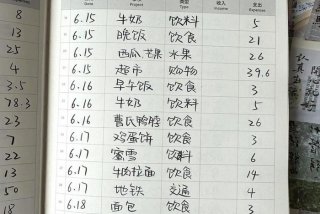 8 6.15 牛奶 饮料 5
13 6.15 晚饭 饮食 21
25 6.15 西瓜芒果 水果 26
4 6.15 超市 购物 39.6
3.5 6.16 早午饭 饮食 3
78.3 6.16 牛奶 饮料 5
23 6.16 曹氏鸭脖 饮食 26
7 6.17 鸡蛋饼 饮食 3
22 6.17 蜜雪 饮料 6
13 6.17 牛肉拉面 饮食 14
50 6.17 地铁 交通 4
18 6.18 面包 饮食 3